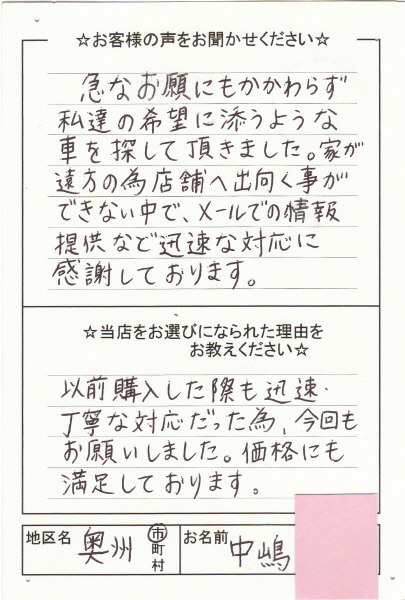 ☆お客様の声をお聞かせください☆
急なお願にもかかわらず
私達の希望に添うような
車を探して頂きました。家が
遠方の為店舗へ出向く事が
できない中で、メールでの情報
提供など迅速な対応に
感謝しております。
☆当店をお選びになられた理由を
お教えください☆
以前購入した際も迅速・
丁寧な対応だった為、今回も
お願いしました。価格にも
満足しております。
地区名 奥州 市町村 お名前 中嶋